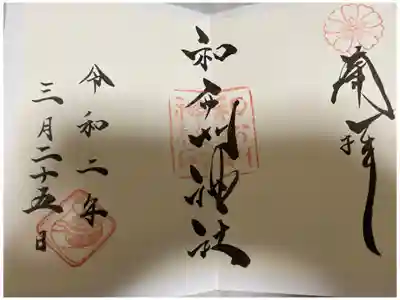 奉拝
和布刈神社
令和二年
三月二十五日